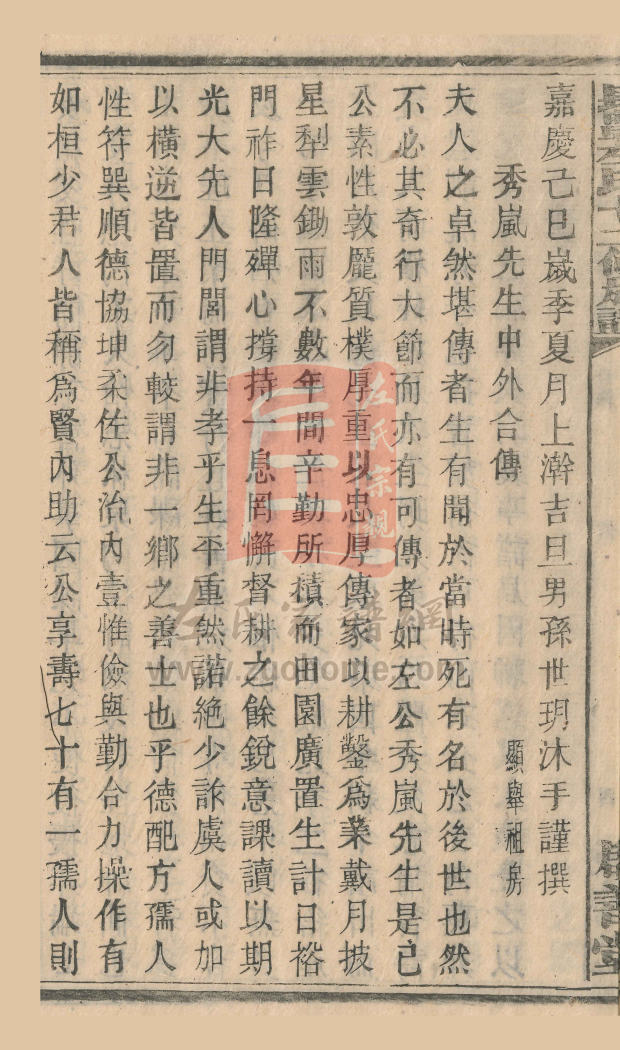 嘉慶己巳歲季夏月上澣吉旦男孫世玥沐手謹撰
秀嵐先生中外合傳
顯舉祖房
夫人之卓然堪傳者生有聞於當時死有名於後世也然
不必其奇行大節而亦有可傳者如左公秀嵐先生是已
公素性敦龐質樸厚重以忠厚傳家以耕鑿爲業戴月披
星犁雲鋤雨不數年間辛勤所積而田園廣置生計日裕
門祚日隆殫心撐持一息罔懈督耕之餘銳意課讀以期
光大先人門閭謂非孝乎生平重然諾絶少詐虞人或加
以橫逆皆置而勿較謂非一鄉之善士也乎德配方孺人
性符巽順德協坤柔佐公治內壹惟儉與勤合力操作有
如桓少君人皆稱爲賢內助云公享壽七十有一孺人則
左氏宗親
左氏宗譜網
www.zuohome.com